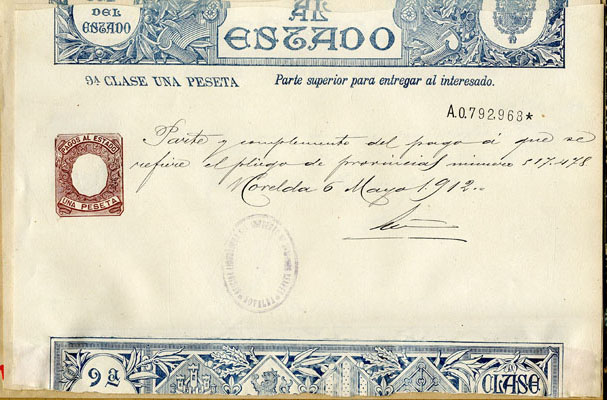 DEL
ESTADO
AL
ESTADO
9ª CLASE UNA PESETA
Parte superior para entregar al interesado.
A.0.792,963*
PAGOS AL ESTADO
UNA PESETA
Parte y complemento del pago á que se
refiere el pliego de provincial número 517.478
Morelda 6 Mayo 1912..
9ª
CLASE